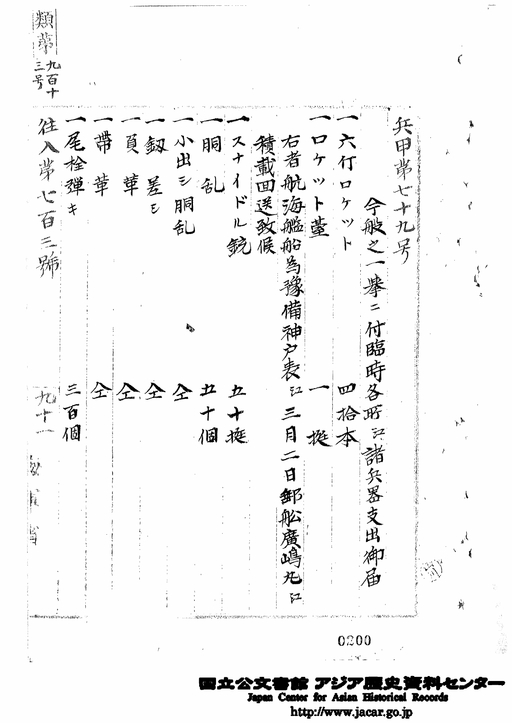 兵甲第七十九号
今般之一挙ニ付臨時各所江諸兵器支出御届
一六斤ロケット 四拾本
一ロケット臺 一挺
右者航海艦船為豫備神戸表江三月二日郵舩廣嶋丸江
積載回送致候
一スナイドル銃 五十挺
一胴乱 五十個
一小出シ胴乱 仝
一釼差シ 仝
一負革 仝
一帯革 仝
一尾栓弾キ 三百個
往入第七百三號 九十一
類第九百十三号
0200
国立公文書館 アジア歴史資料センター
Japan Center for Asian Historical Records
http://www.jacar.go.jp